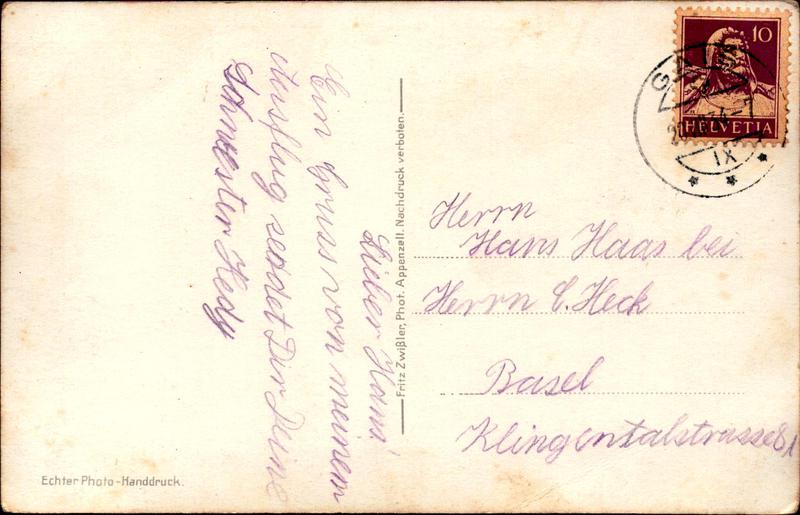 Lieber Hans!
Ein Gruss von meinem
Ausflug sendet Dir Deine
Schwester Hedy
Fritz Zwißler, Phot. Appenzell. Nachdruck verboten.
Echter Photo-Handdruck.
10
HELVETIA
GAIS
IX
Herrn
Hans Haas bei
Herrn C. Heck
Basel
Klingentalstrasse 81